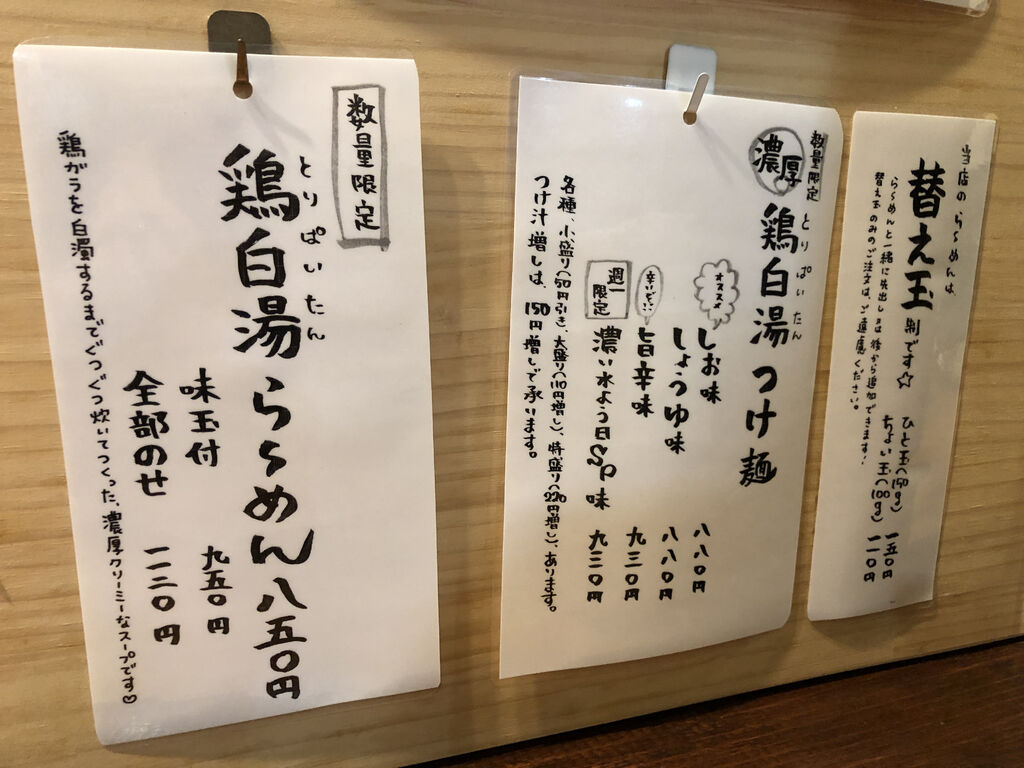 数量限定
鶏白湯らーめん八五〇円
とりぱいたん
味玉付 九五〇円
全部のせ 一一二〇円
鶏がらを白濁するまでぐつぐつ炊いてつくった、濃厚クリーミーなスープです♡
数量限定
濃厚鶏白湯つけ麺
とりぱいたん
オススメ
しお味 八八〇円
しょうゆ味 八八〇円
辛いどぃ
旨辛味 九三〇円
週一限定
濃い水よう日SP味 九三〇円
各種、小盛り(50円引き)、大盛り(110円増し)、特盛り(220円増し)、あります。
つけ汁増しは、150円増しで承ります。
当店のらーめんは、
替え玉別です☆
らーめんと一緒に先出し又は後から追加できます!
替え玉のみのご注文は、ご遠慮ください。
ひと玉(150g) 一五〇円
ちょい玉(100g) 一一〇円